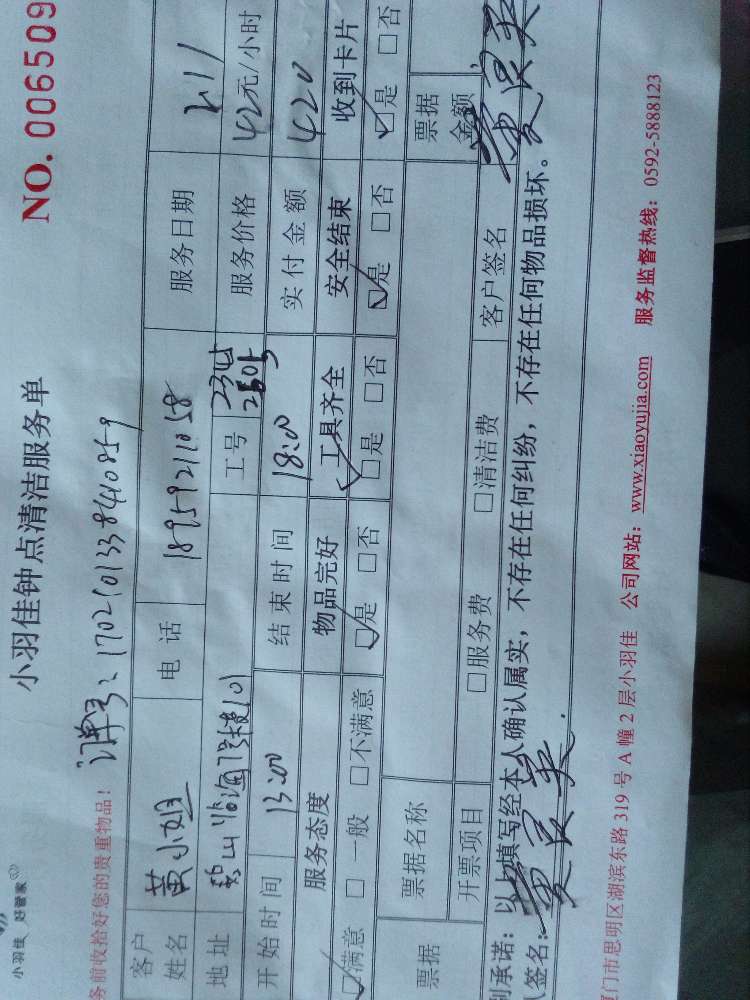 小羽佳 好管家
小羽佳钟点清洁服务单
NO. 006509
务前收拾好您的贵重物品！ 订单号：
客户姓名 黄小姐 电话 18959211058 服务日期
地址 工号 服务价格 42元/小时
开始时间 13:00 结束时间 18:00 实付金额 420
服务态度 物品完好 工具齐全 安全结束 收到卡片
☑满意 □一般 □不满意 ☑是 □否 ☑是 □否 ☑是 □否 ☑是 □否
票据 票据名称 票据金额
开票项目 □服务费 □清洁费 客户签名
别承诺：以上填写经本人确认属实，不存在任何纠纷，不存在任何物品损坏。
人签名：
厦门市思明区湖滨东路 319 号 A 幢 2 层小羽佳 公司网站：www.xiaoyujia.com 服务监督热线：0592-5888123